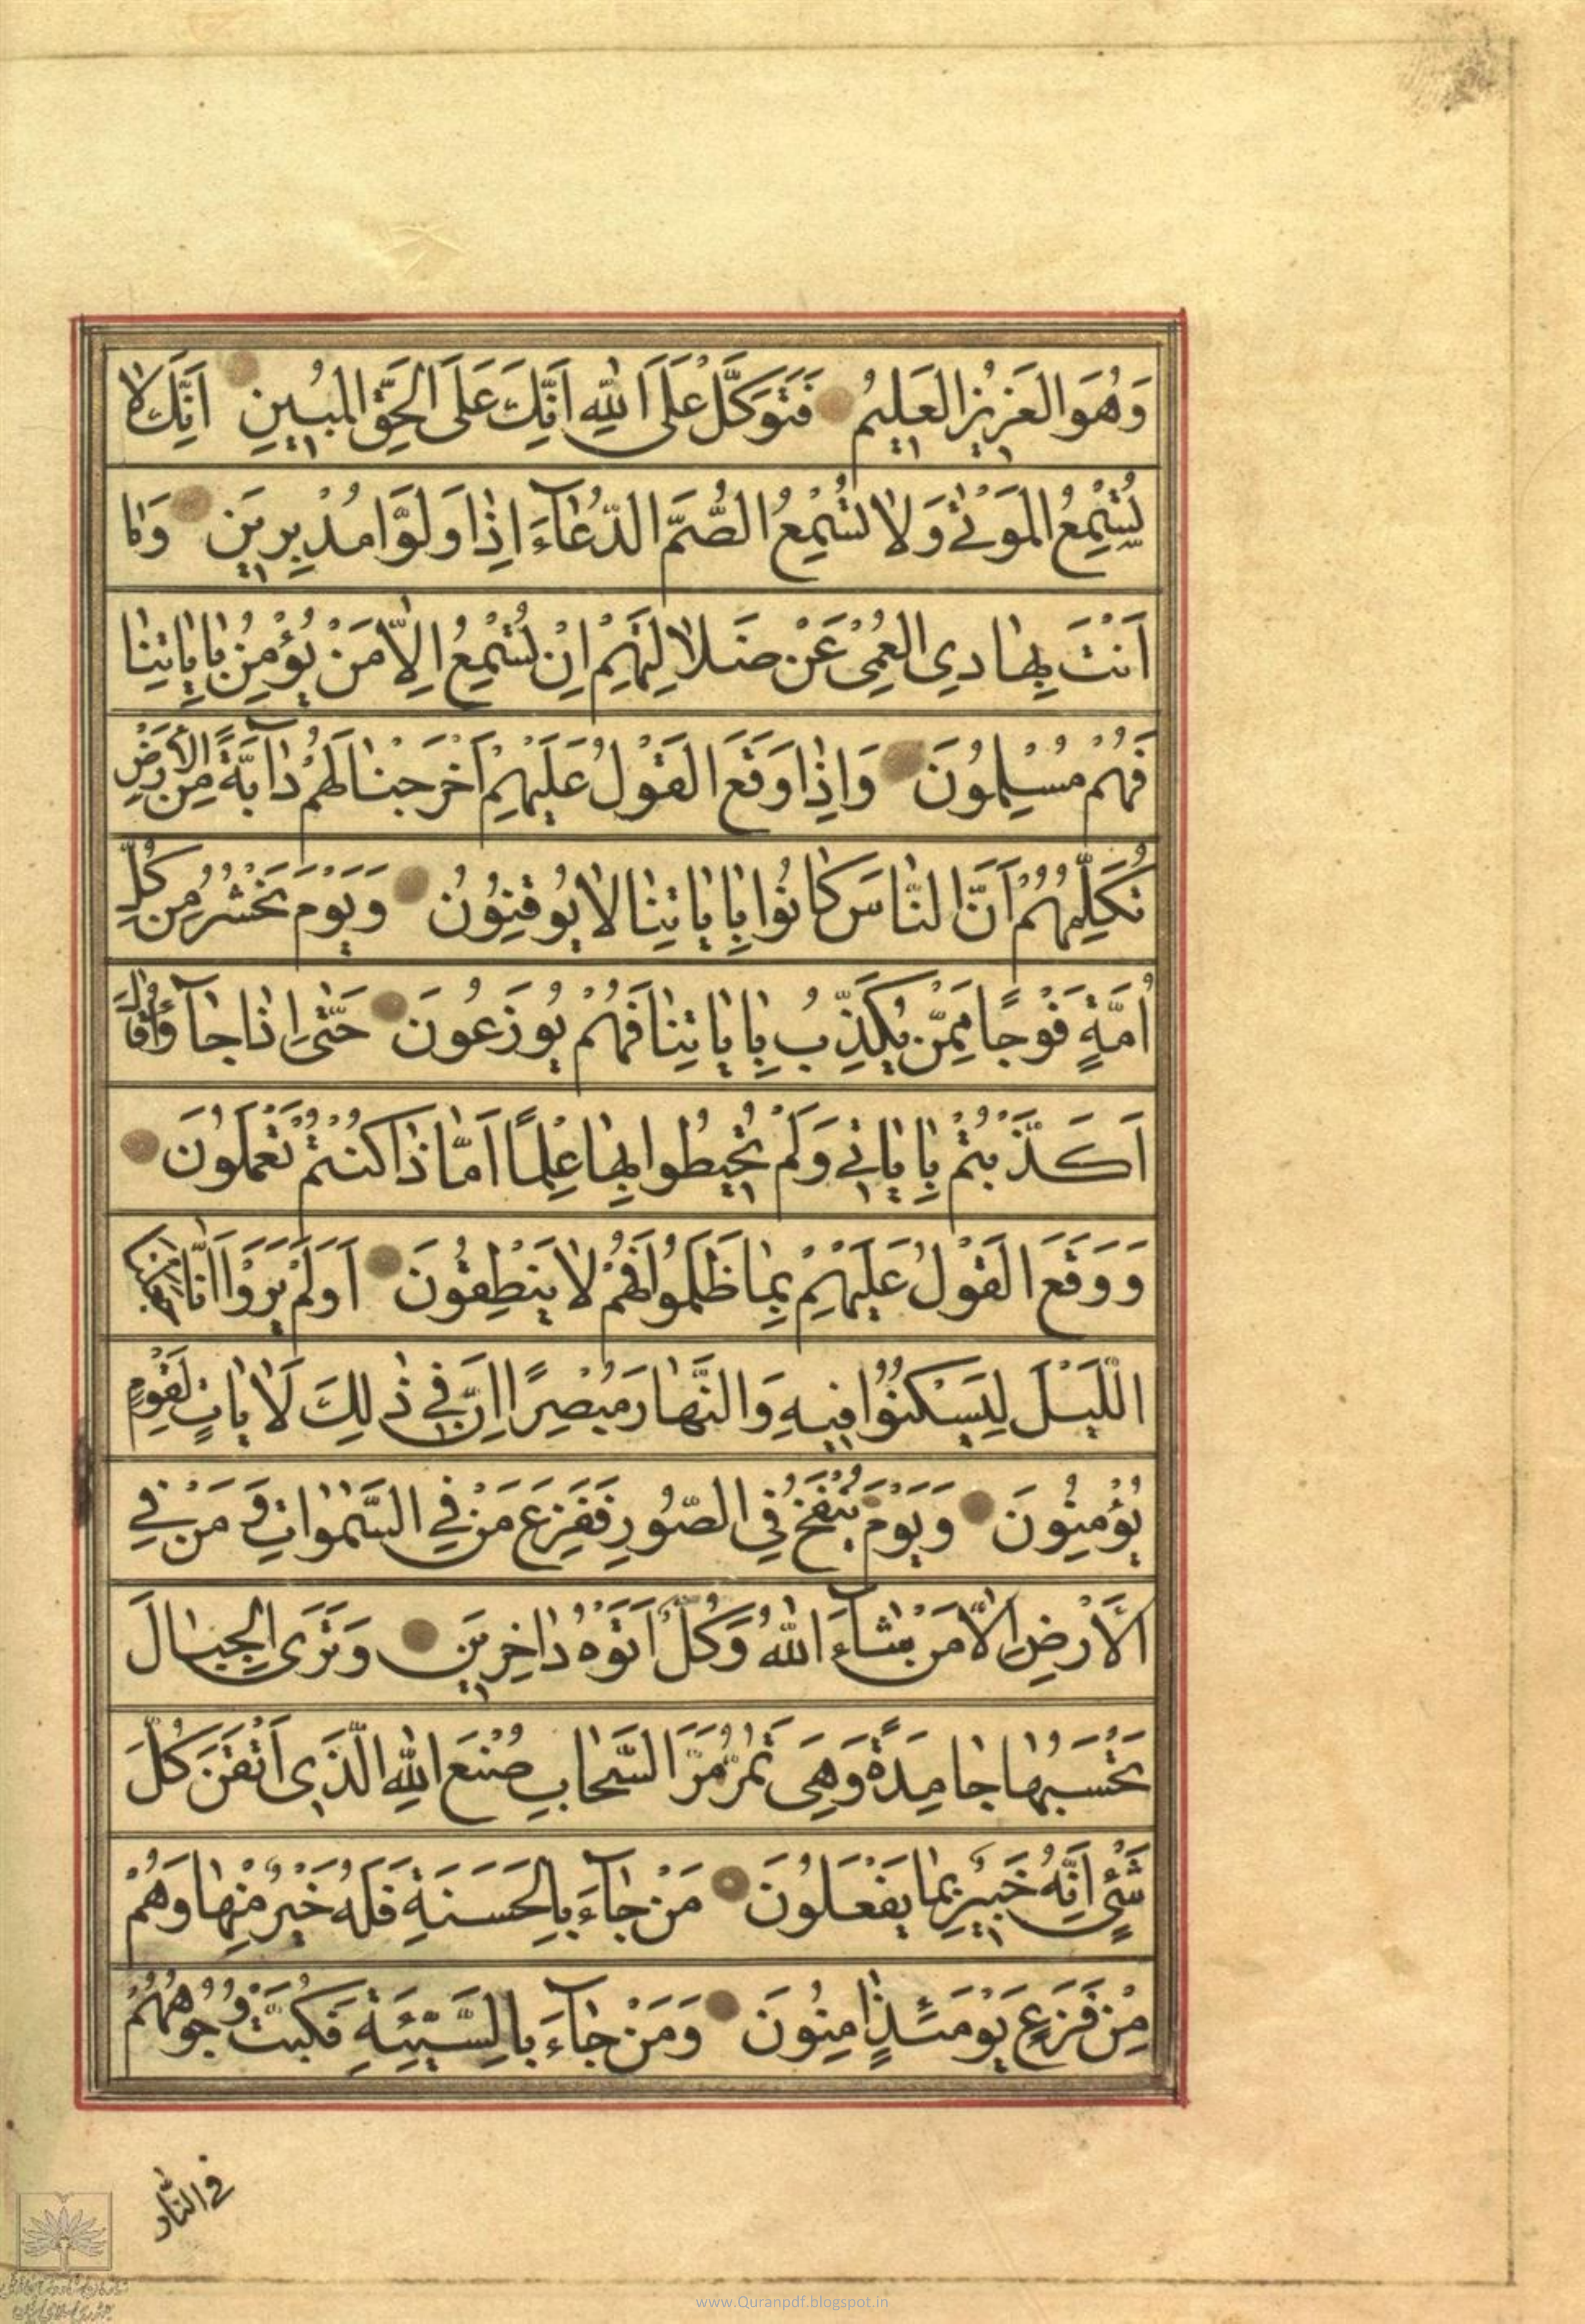 وَهُوَ العَزِيزُ العَلِيمُ فَتَوَكَّلْ عَلَى اللّٰهِ اِنَّكَ عَلَى الحَقِّ المُبِينِ اِنَّكَ لا
تُسْمِعُ المَوْتٰى وَلا تُسْمِعُ الصُّمَّ الدُّعٰآءَ اِذٰا وَلَّوْا مُدْبِرِينَ وَمٰا
اَنْتَ بِهٰادِي العُمْيِ عَنْ ضَلالَتِهِمْ اِنْ تُسْمِعُ اِلّٰا مَنْ يُؤْمِنُ بِاٰيٰاتِنٰا
فَهُمْ مُسْلِمُونَ وَاِذٰا وَقَعَ القَوْلُ عَلَيْهِمْ اَخْرَجْنٰا لَهُمْ دٰآبَّةً مِنَ الْاَرْضِ
تُكَلِّمُهُمْ اَنَّ النّٰاسَ كٰانُوا بِاٰيٰاتِنٰا لا يُوقِنُونَ وَيَوْمَ نَحْشُرُ مِنْ كُلِّ
اُمَّةٍ فَوْجًا مِمَّنْ يُكَذِّبُ بِاٰيٰاتِنٰا فَهُمْ يُوزَعُونَ حَتّٰى اِذٰا جٰآؤُ قٰالَ
اَكَذَّبْتُمْ بِاٰيٰاتِي وَلَمْ تُحِيطُوا بِهٰا عِلْمًا اَمّٰا ذٰا كُنْتُمْ تَعْمَلُونَ
وَوَقَعَ القَوْلُ عَلَيْهِمْ بِمٰا ظَلَمُوا فَهُمْ لا يَنْطِقُونَ اَوَلَمْ يَرَوْا اَنّٰا جَعَلْنَا
اللَّيْلَ لِيَسْكُنُوا فِيهِ وَالنَّهٰارَ مُبْصِرًا اِنَّ فِي ذٰلِكَ لَاٰيٰاتٍ لِقَوْمٍ
يُؤْمِنُونَ وَيَوْمَ يُنْفَخُ فِي الصُّورِ فَفَزِعَ مَنْ فِي السَّمٰوٰاتِ وَ مَنْ فِي
الْاَرْضِ اِلّٰا مَنْ شٰآءَ اللّٰهُ وَكُلٌّ اَتَوْهُ دٰاخِرِينَ وَتَرَى الجِبٰالَ
تَحْسَبُهٰا جٰامِدَةً وَهِيَ تَمُرُّ مَرَّ السَّحٰابِ صُنْعَ اللّٰهِ الَّذِي اَتْقَنَ كُلَّ
شَيْءٍ اِنَّهُ خَبِيرٌ بِمٰا يَفْعَلُونَ مَنْ جٰآءَ بِالحَسَنَةِ فَلَهُ خَيْرٌ مِنْهٰا وَهُمْ
مِنْ فَزَعٍ يَوْمَئِذٍ اٰمِنُونَ وَمَنْ جٰآءَ بِالسَّيِّئَةِ فَكُبَّتْ وُجُوهُهُمْ
في النّٰار
www.Quranpdf.blogspot.in